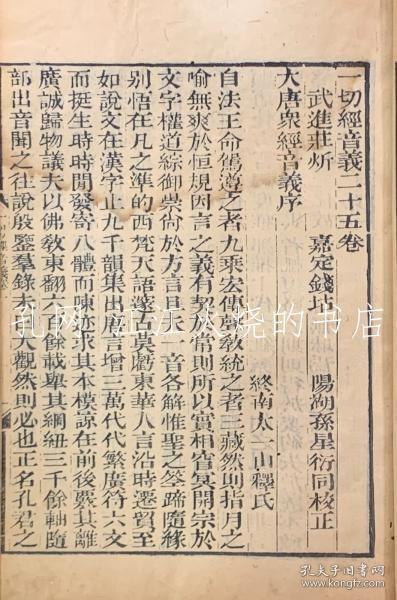 一切經音義二十五卷
武進莊炘 嘉定錢坫 陽湖孫星衍同校正
大唐衆經音義序
終南太一山釋氏
自法王命駕遵之者九乘宏傳聲教統之者三藏然則指月之
喻無爽於恒規因言之義有契於常則所以實相窅冥開宗於
文字權道綜御崇尚於方言且夫一音各解惟聖之筌蹄隨緣
别悟在凡之準的西梵天語邃古莫虧東華人言沿時遷貿至
如說文在漢字止九千韻集出唐言增三萬代代繁廣符六文
而挺生時時閒發寄八體而陳迹求其本模諒在前後覈其離
廣誠歸物議夫以佛教東翻六百餘載舉其綱紐三千餘軸隨
部出音聞之往說殷鑒羣錄未大觀然則必也正名孔君之
孔网 江江火烧的书店
孔夫子旧书网
www.kongfz.com